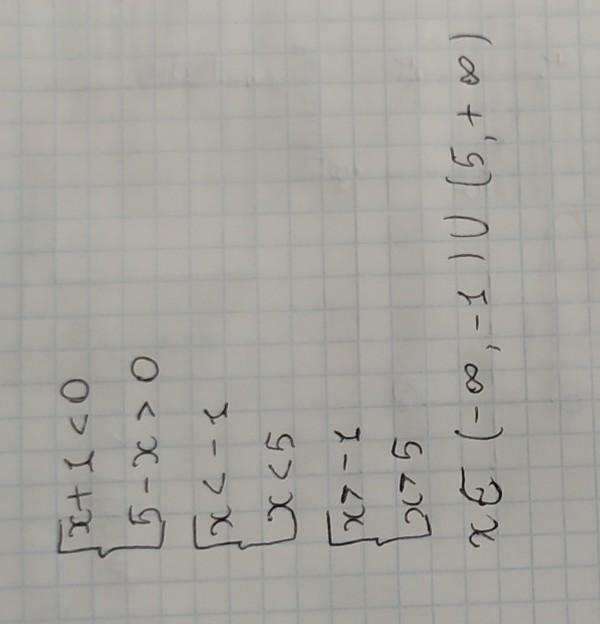 { x + 1 < 0
5 - x > 0
{ x < -1
x < 5
{ x > -1
x > 5
x ∈ (-∞, -1) ∪ (5, +∞)